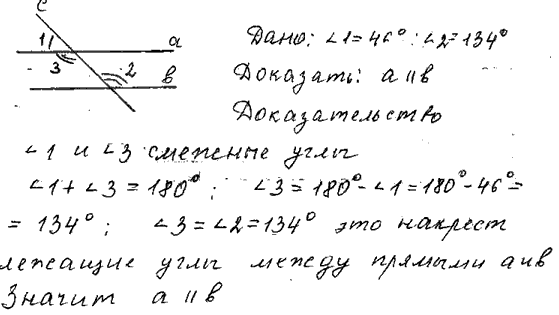 c
1 a
3 2 в
Дано: ∠1=46°; ∠2=134°
Доказать: a ∥ в
Доказательство
∠1 и ∠3 смежные углы
∠1 + ∠3 = 180°; ∠3 = 180° - ∠1 = 180° - 46° =
= 134°; ∠3 = ∠2 = 134° это накрест
лежащие углы между прямыми a и в
Значит a ∥ в